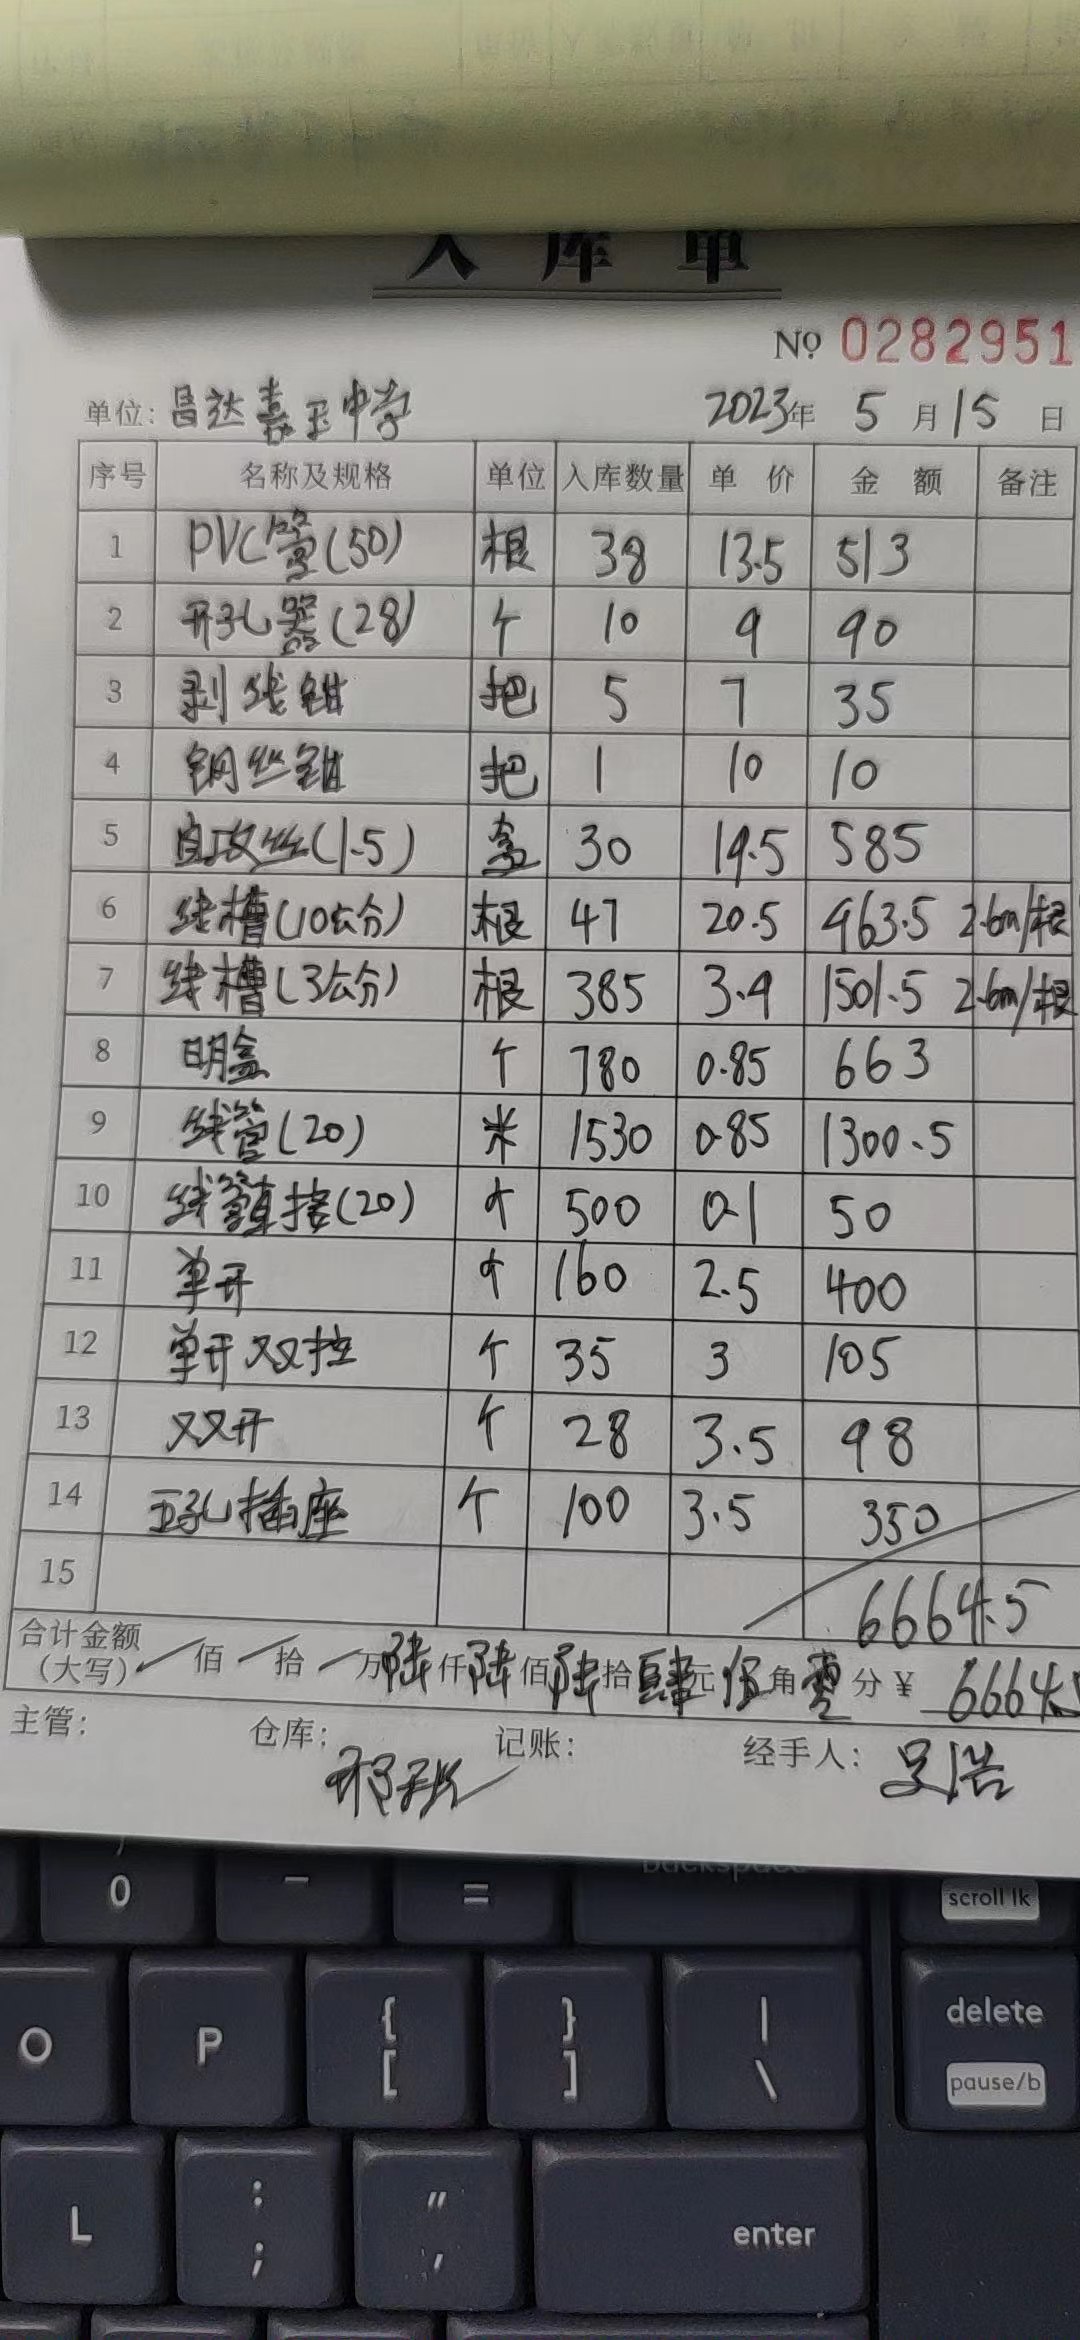 入库单
№ 0282951
单位: 昌达嘉玉中学 2023年 5月15日
序号 名称及规格 单位 入库数量 单价 金额 备注
1 PVC管(50) 根 38 13.5 513
2 开孔器(28) 个 10 9 90
3 剥线钳 把 5 7 35
4 钢丝钳 把 1 10 10
5 自攻丝(1.5) 盒 30 19.5 585
6 线槽(10公分) 根 47 20.5 963.5 2.6m/根
7 线槽(3公分) 根 385 3.9 1501.5 2.6m/根
8 明盒 个 780 0.85 663
9 线管(20) 米 1530 0.85 1300.5
10 线管直接(20) 个 500 0.1 50
11 单开 个 160 2.5 400
12 单开双控 个 35 3 105
13 双开 个 28 3.5 98
14 五孔插座 个 100 3.5 350
15 6664.5
合计金额(大写) 佰 拾 万陆仟陆佰陆拾肆元伍角零分 ¥ 6664.5
主管: 仓库: 记账: 经手人: 吴浩
backspace
0 - = scroll lk
O P { [ } ] | \ delete
pause/b
L : ; " ' enter